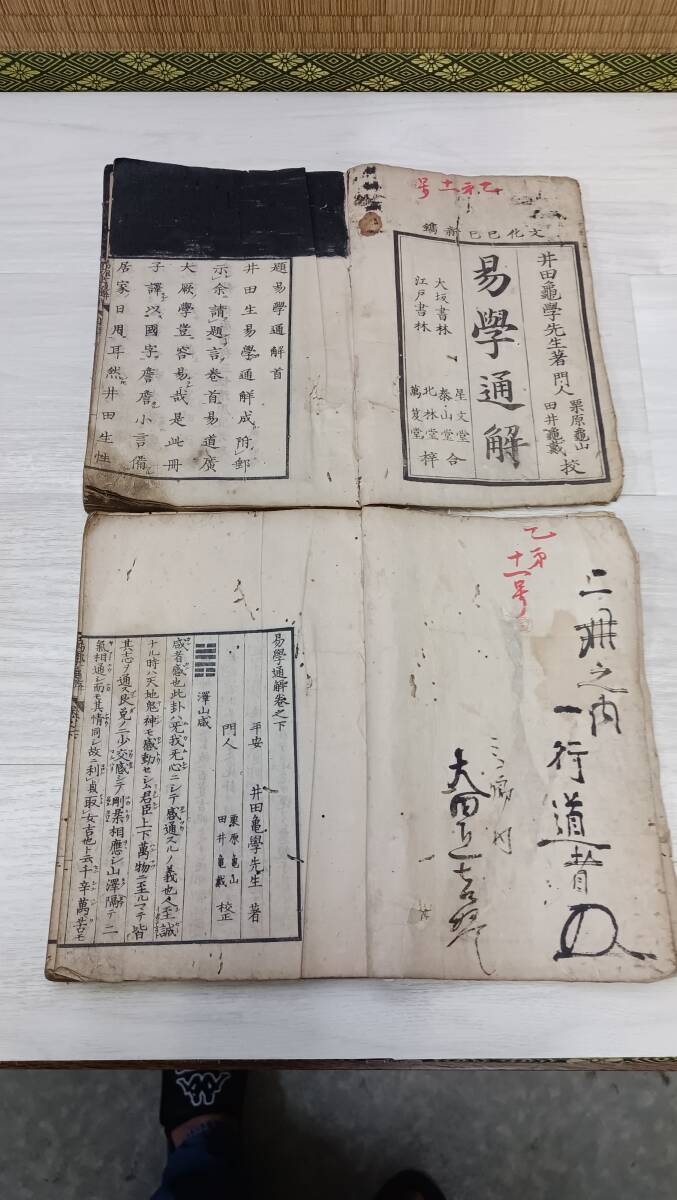 乙第十一号
文化己巳新鐫
井田龜學先生著
門人
栗原龜山
田井龜戴
校
易學通解
大坂書林
江戸書林
星文堂
泰山堂
北林堂
萬笈堂
合梓
題易學通解首
井田生易學通解成附郵
示余請題言卷首易道廣
大厥學豈容易哉是此冊
子譯以國字詹詹小言備
居家日用耳然井田生性
乙第
十一号
二冊之内
一行道
易學通解卷之下
平安 井田龜學先生 著
門人
栗原龜山
田井龜戴
校正
澤山咸
咸者感也此卦ハ无我无心ニシテ感通スルノ義也人至誠
ナル時ハ天地鬼神モ感動セシム君臣上下萬物ニ至ルマテ皆
其志ヲ通ス艮兌ノ二少交感シテ剛柔相應シ山澤隔テ二
氣相通シ而モ其情同シ故ニ利貞取女吉也ト云千辛萬苦モ